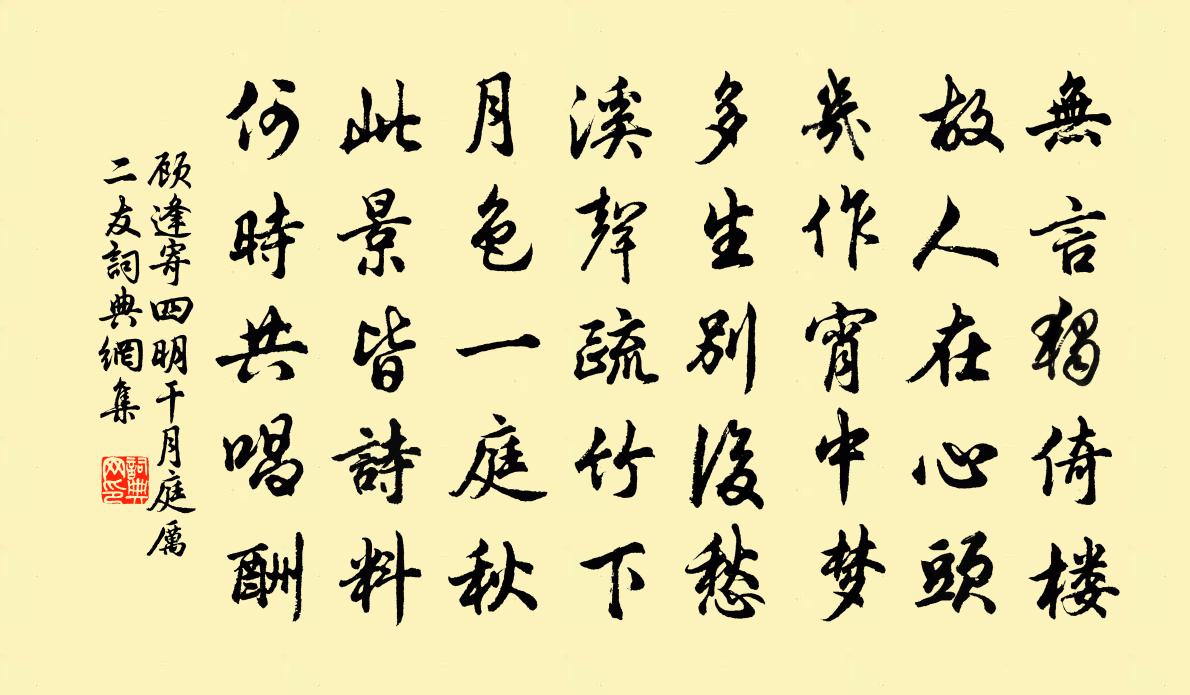 無言獨倚楼
故人在心頭
幾作宵中梦
多生別後愁
溪聲疏竹下
月色一庭秋
此景皆詩料
何時共唱酬
顾逢寄四明干月庭厲
二友詞典網集
詞典
网印